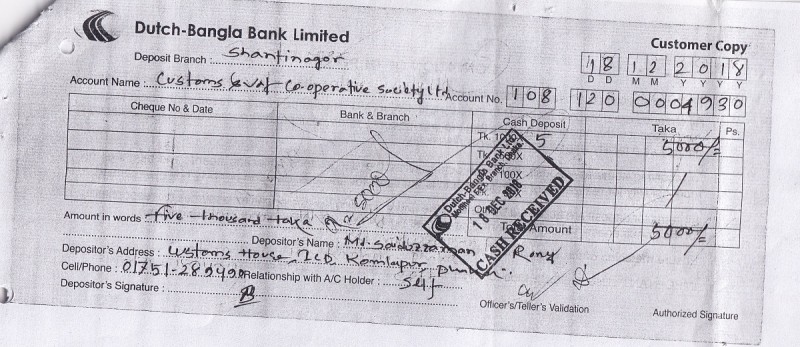 Dutch-Bangla Bank Limited
Customer Copy
Deposit Branch : Shantinagor
18 12 2018
D D M M Y Y Y Y
Account Name : Customs & Vat Co-operative Society Ltd. Account No. 108 120 0004930
Cheque No & Date Bank & Branch Cash Deposit Taka Ps.
Tk. 1000X 5 5000/=
Tk. 500X
100X
5000
Dutch-Bangla Bank Ltd.
18 DEC 2018
CASH RECEIVED
Amount in words five thousand taka Total Amount 5000/=
Depositor's Name : Md. Saiduzzaman Rony
Depositor's Address : Customs House, ICD, Kamlapur,
Cell/Phone : Relationship with A/C Holder : Self
Depositor's Signature :
Officer's/Teller's Validation
Authorized Signature